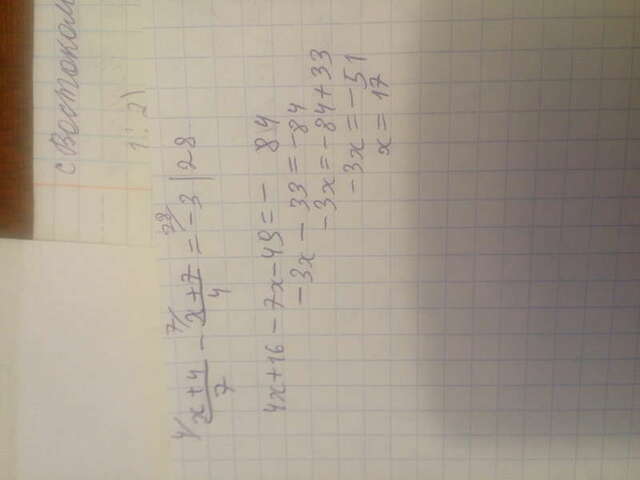 с Востоком
1: 2)
4/ x+4/7 - 7/ x+7/4 = 28/ -3 | 28
4x+16 - 7x-49 = - 84
-3x - 33 = -84
-3x = -84+33
-3x = -51
x = 17